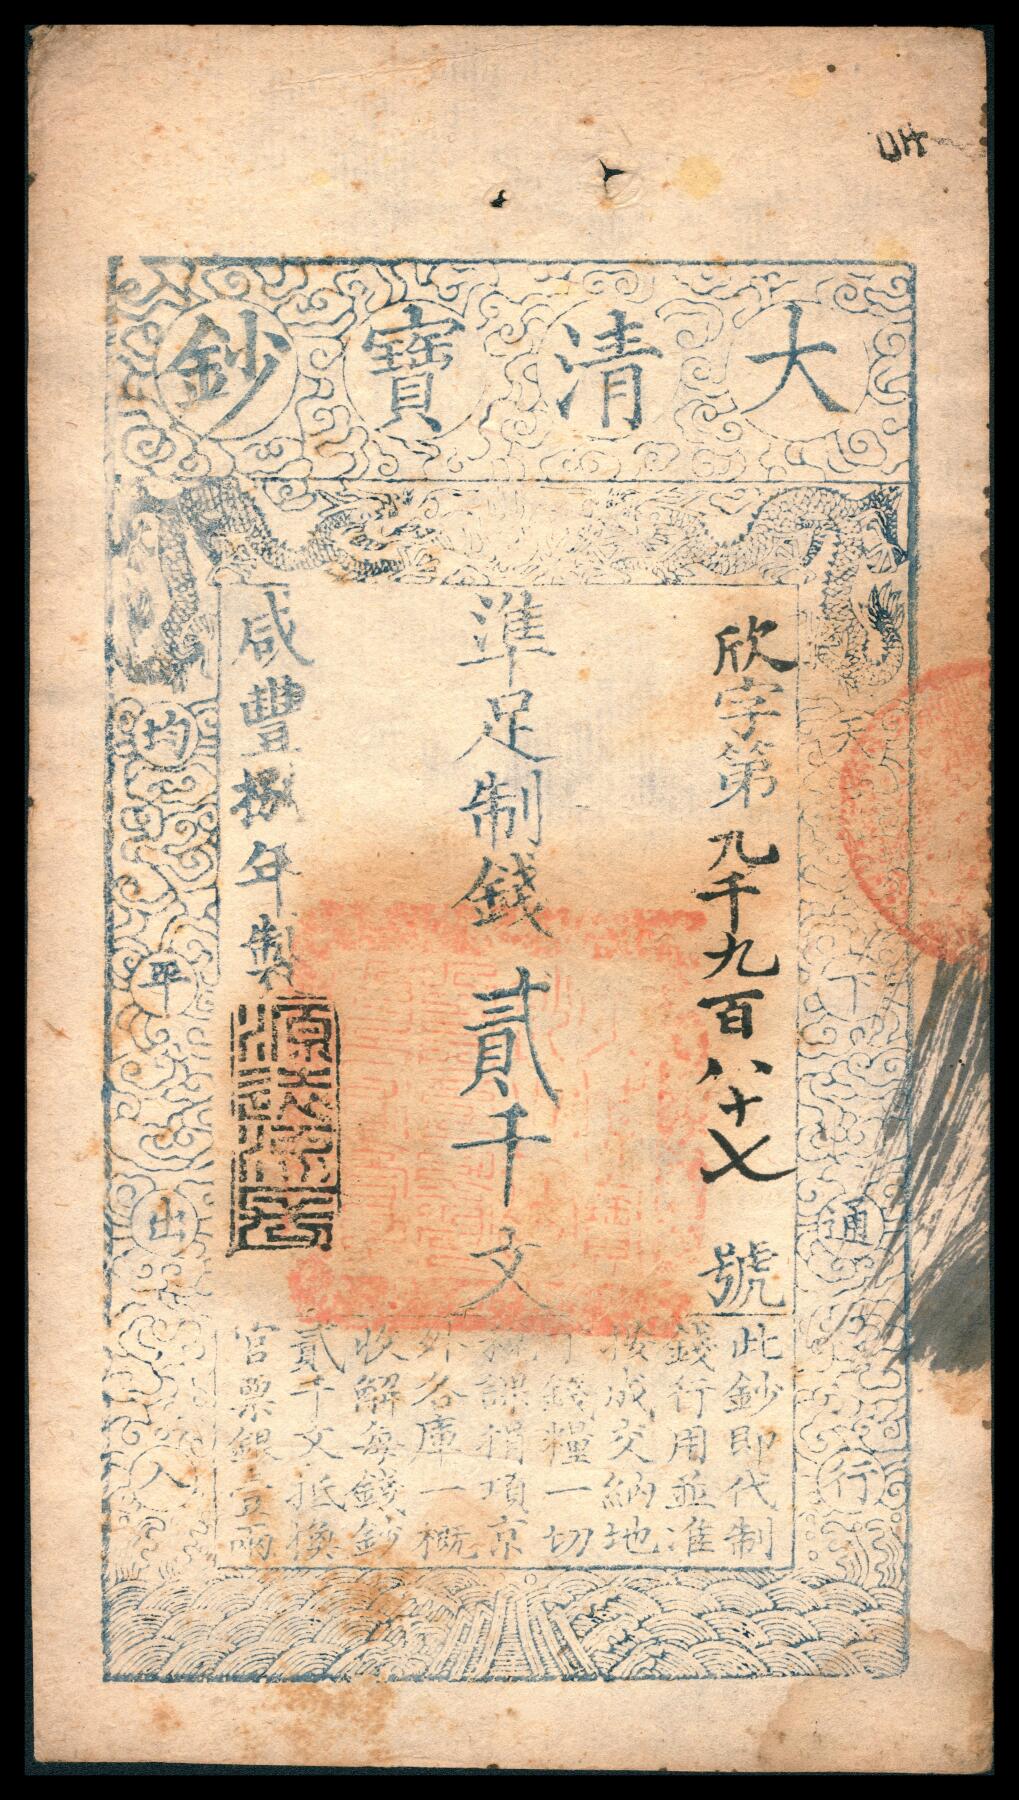 大清寶鈔
天下通行
均平出入
欣字第九千九百八十七號
準足制錢貳千文
咸豐捌年製
此鈔即代制
錢行用並準
按成交納地
丁錢糧一切
稅課捐項京
外各庫一概
收解每錢鈔
貳千文抵換
官票銀壹兩